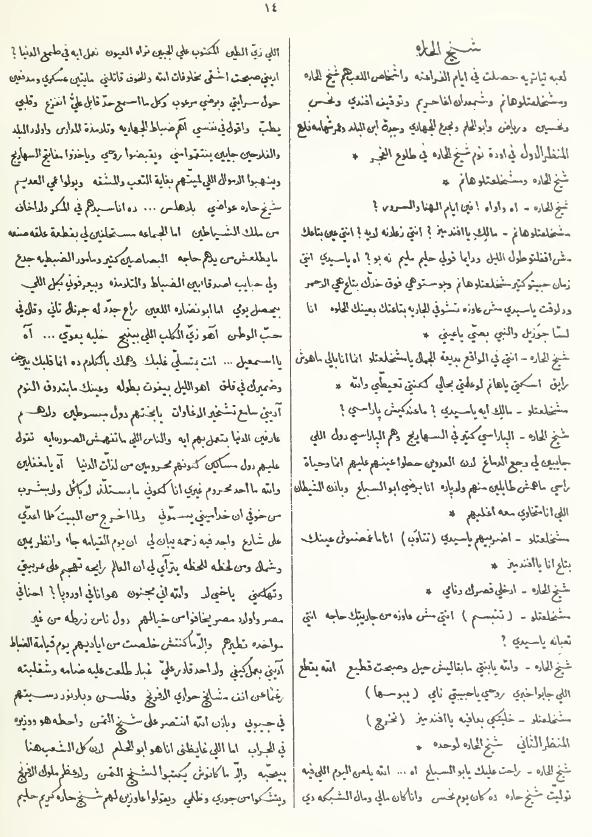 ١٤
شيخ الحاره
لعبه تياتريه حصلت في ايام الفراعنه واشخاص اللعب هم شيخ الحاره
ومشخلعتلو هانم وشمعدان اغا حريم وتوقيف افندي ونحس
ونحسين ورياض وابو الحلم ونجع الجهادي وجدع ابن البلد
المنظر الاول في اودة نوم شيخ الحاره في طلوع الفجر *
شيخ الحاره ومشخلعتلو هانم *
شيخ الحاره - اه واواه افين ايام الهنا والسرور ؟
مشخلعتلو هانم - مالك يا افنديمز ؟ انتي زعلانه لايه ؟ انتي عين بتاعك
مش اقفلتو طول الليل ودايما قولي حليم حليم نه بو ؟ اه ياسيدي انتي
زمان حبيتو كثير مشخلعتلو هانم وبوستوهي فوق خدك بتاع هي الاحمر
ودلوقت ياسيدي مش عاوزه تشوفي الجاريه بتاعتك بعينك الحلوه انا
لسا جوزيل والنبي بصي ياعيني *
شيخ الحاره - انتي في الواقع بديعة الجمال يا مشخلعتلو انما انا بالي ماهوش
رايق اسكتي ياهانم لو علمتي بحالي كنتي تعيطي والله *
مشخلعتلو - مالك ايه ياسيدي ؟ ماعندكيش پارسي ؟
شيخ الحاره - الپارسي كثير في السهاريج وهم الپارسي دول اللي
جابين لي وجع الدماغ لان العدوين حطوا عينهم عليهم انما وحياة
راسي ماهمش طايلين منهم ولا پاره انا برضي ابو السباع وباذن الشيطان
اللي انا متحاوي معه اغلبهم *
مشخلعتلو - اضربيهم ياسيدي (تتاوب) انا ما غمضتوش عينك
بتاع انا يا افنديمز *
شيخ الحاره - ادخلي قصرك ونامي *
مشخلعتلو - (تتبسم) انتي مش عاوزه من جاريتك حاجه انتي
تعبانه ياسيدي ؟
شيخ الحاره - والله يابنتي ما بقاليش حيل وصبحت قطيع الله يقطع
اللي جابوا خبري روحي ياحبيبتي نامي (يبوسها)
مشخلعتلو - خليتكي بعافيه يا افنديمز (تخرج)
المنظر الثاني شيخ الحاره لوحده *
شيخ الحاره - راحت عليك يا بو السباع اه ... الله يلعن اليوم اللي فيه
توليت شيخ حاره ده كان يوم نحس وانا كان مالي ومال الشبكه دي
اللي زي الطين المكتوب على الجبين تراه العيون نعمل ايه في طمع الدنيا ؟
اديني صبحت اشقى مخلوقات الله والخوف قاتلني مابتين عسكري ومدفعين
حول سرايتي وبرضي مرعوب وكل ما اسمع حد قابل علي انفزع وقلبي
يطب واقول في نفسي اهم ضباط الجهاديه وتلامذة المدارس واولاد البلد
والفلاحين جايين ينتقموا مني ويقبضوا روحي وياخذوا مفاتيح السهاريج
وينهبوا الاموال اللي لميتهم بغاية التعب والمشقه ويولوا عمي العديم
شيخ حاره عواضي بلا هلس ... ده انا سيدهم في المكر ولا اخاف
من ملك الشياطين اما الجماعه مستحلفين لي بقطعة علقه صنعه
ما يطلعش من يدهم حاجه البصاصين كثير ومامور الضبطيه جدع
ولي حبايب اصدقا بين الضباط والتلامذه وبيعرفوني بكل اللي
بيحصل يومي اما ابو نضاره اللعين راح جدد له جرنال تاني وقال في
حب الوطن اهو زي الكلب اللي بينبح خليه يعوي ... آه
يا اسمعيل ... انت بتسلي قلبك وهمك بالكلام ده انما قلبك بيرجف
وضميرك في قلق اهو الليل بيفوت بطوله وعينك ما بتدوق النوم
آديني سامع تشخير الاغاوات يا بختهم دول مبسوطين ولا هم
عارفين الدنيا بتعمل بهم ايه والناس اللي ما تفهمش الصوره ايه تقول
عليهم دول مساكين لكونهم محرومين من لذات الدنيا آه يا مغفلين
والله ما احد محروم غيري انا لكوني ما بستلذ لا باكل ولا بشرب
من خوفي ان خدامي يسمّوني ولما اخرج من البيت كما اعدي
على شارع واجد فيه زحمه يبان لي ان يوم القيامه جاء وانظر يمين
وشمال ومن لحظه للحظه يترآى لي ان العالم رايحه تهجم على عربيتي
وتهلكني ياخي لا والله اني مجنون هو انا في اوروپا ؟ احنا في
مصر واولاد مصر يخافوا من خيالهم دول ناس زربطه من غير
مواخذه نظيرهم والا ما كنتش خلصت من اياديهم يوم قيامة الضباط
آديني بعمل كيفي ولا احد قادر علي غبار طلعت عليه ضامه وشقلبته
رغما عن انف مشايخ حواري الافرنج وفلسن وبلا دور دسيتهم
في جيبوني وباذن الله انتصر على شيخ التمن واحطه هو ووزيره
في الجراب اما اللي غايظني انا هو ابو الحلم لان كل الشعب هنا
بيحبه والا ما كانوش يكتبوا لشيخ التمن ولاعظم ملوك الافرنج
ويشكوا من جوري وظلمي ويقولوا عاوزين لهم شيخ حاره كريم حليم